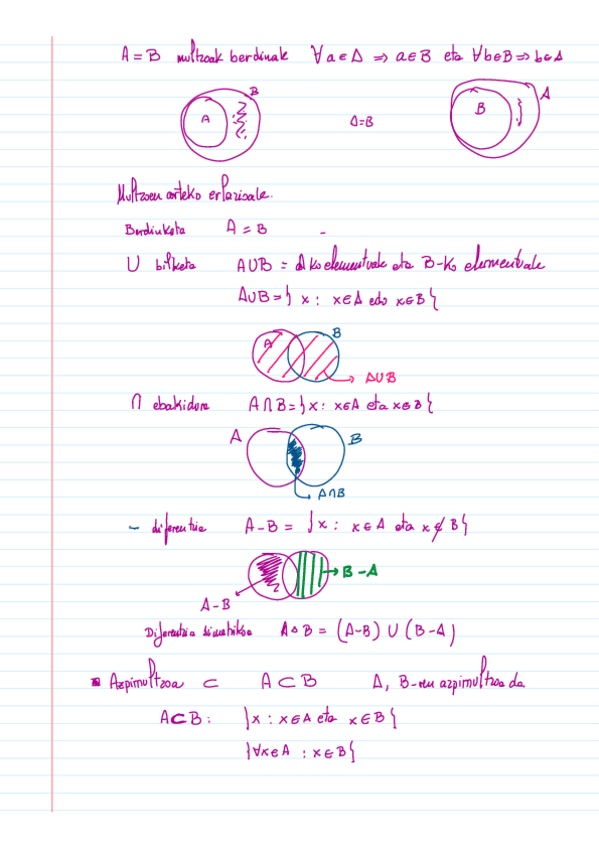 A = B multzoak berdinak ∀a∈A ⇒ a∈B eta ∀b∈B ⇒ b∈A
A B A=B B A
Multzoen arteko erlazioak.
Berdinketa A = B
∪ bilketa A∪B = A ko elementuak eta B-ko elementuak
A∪B = } x : x∈A edo x∈B {
A B
A∪B
∩ ebakidura A∩B = } x : x∈A eta x∈B {
A B
A∩B
- diferentzia A-B = } x : x∈A eta x∉B }
B-A
A-B
Diferentzia simetrikoa A△B = (A-B) ∪ (B-A)
Azpimultzoa ⊂ A⊂B A, B-ren azpimultzoa da
A⊂B : } x : x∈A eta x∈B {
} ∀x∈A : x∈B {